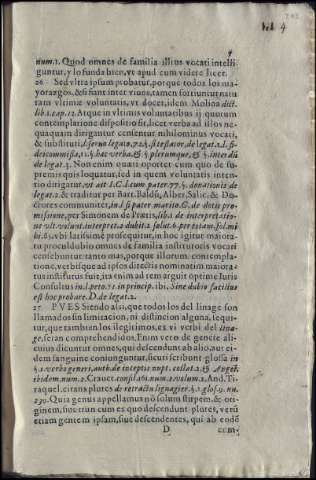 4
num.1. Quod omnes de familia illius vocati intelli
guntur, y lo funda bien, vt apud eum videre licet.
26 Sed vltra ipsum probatur, porque todos los ma
yorazgos, & si fiant inter viuos, tamen sortiuntur natu
ram vltimæ voluntatis, vt docet, idem Molina dict.
lib.1.cap.12. Atque in vltimis voluntatibus ij quorum
contemplatione dispositio fit, licet verba ad illos ne-
quaquam dirigantur censentur nihilominus vocati,
& substituti, l.seruo legato, 72.§.si testator, de legat.1. l. fi
deicommissa, 11.§. hæc verba, & §. plerumque, & §. inter
de legat.3. Non enim quati oportet cum quo de su-
premis quis loquatur, sed in quem voluntatis inten-
tio dirigatur, vt ait I.C. l. cum pater 77.§. donationis de
legat.2. & traditur per Bart. Bald. Alber. Salic. & Do
ctores communiter, in l. si pater marito, C. de dotis pro-
missione, per Simonem de Prætis, lib.2. de interpretatio-
ne vlt. volunt. interpret.
vbi latissime prosequitur, in hoc igitur maiora-
tu proculdubio omnes de familia institutoris vocati
censebuntur tanto mas, porque illorum contempla-
tione, vt bisque ad ipsos directis nominatim maiora-
tus institutus fuit, ita enim ad rem arguit optime Iuris
Consultus in l. peto, 71. in princip. ibi, Sine dubio facilius
est hoc probare. D. de legat.2.
27 PVES siendo assi, que todos los del linage son
llamados sin limitacion, ni distincion alguna, sequi-
tur, que tambien los ilegitimos, ex vi verbi del lina-
ge, seran comprehendidos, Enim vero de gente ali-
cuius dicuntur omnes, qui descendunt ab alio, aut ei-
dem sanguine coniunguntur, sicuti scribunt glossa in
§.1. verbo generi, auth. de incestis nupt. collat.2. & Angel.
ibidem num.2. Crauet. consil. num.2. volum. And. Ti-
raquel. citans plures de retractu lignagier. §.1. glos.9. nu.
230. Quia genus appellamus nõ solum stirpem, & ori
ginem, sine trun cum ex quo descendunt plures, verũ
etiam gentem ipsam, siue descendentes, qui ab eodẽ
D com-